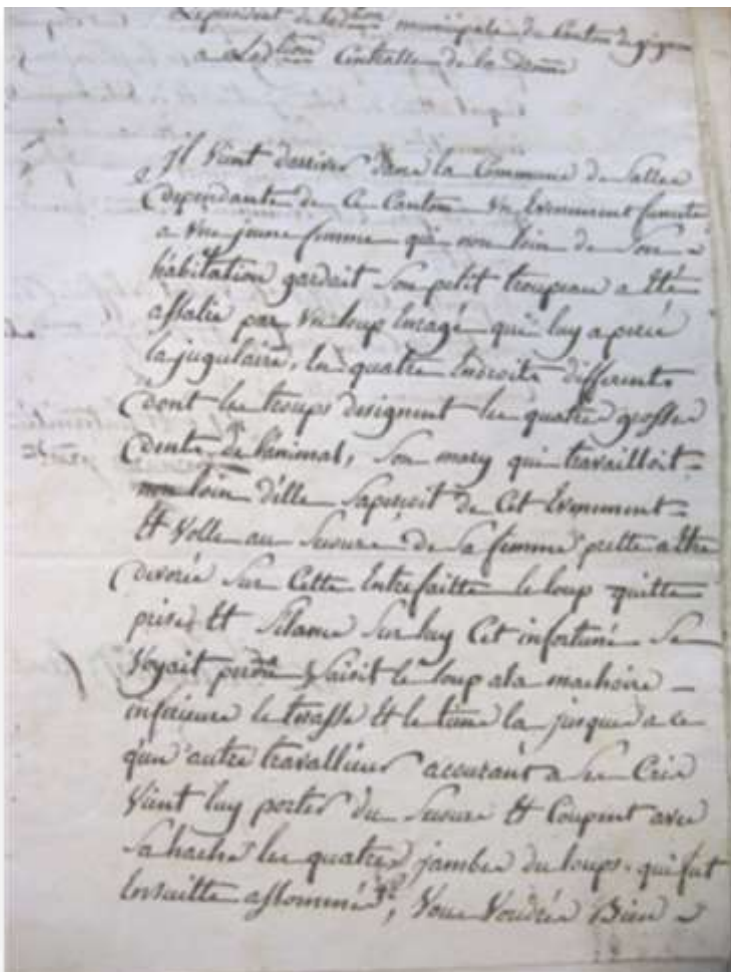 Le president de Ledtion municipale du Canton de grignan
a Ledtion Centralle de la drome
Il vient darriver dans la Commune de Salles
dependante de ce Canton un Evenement funeste
a une jeune femme qui non loin de son
habitation gardait son petit troupeau a été
assalie par un loup Enragé qui luy a percé
la jugulaire, En quatre Endroits differents
dont les troups designent les quatre grosses
dents de l'animal, son mary qui travailloit
non loin d'elle sapersoit de Cet Evenement
Et volle au secours de sa femme prette a Etre
devorée sur Cette Entrefaitte le loup quitte
prise Et selance sur luy Cet infortuné se
voyait perdu saisit le loup ala machoire
inferieure le terasse Et le tiens la jusques a ce
qun autre travallieur accourant a ses Cris
vient luy porter du secours Et Coupent avec
sa hache les quatres jambes du loups. qui fut
Ensuitte assommé, vous voudrés Bien